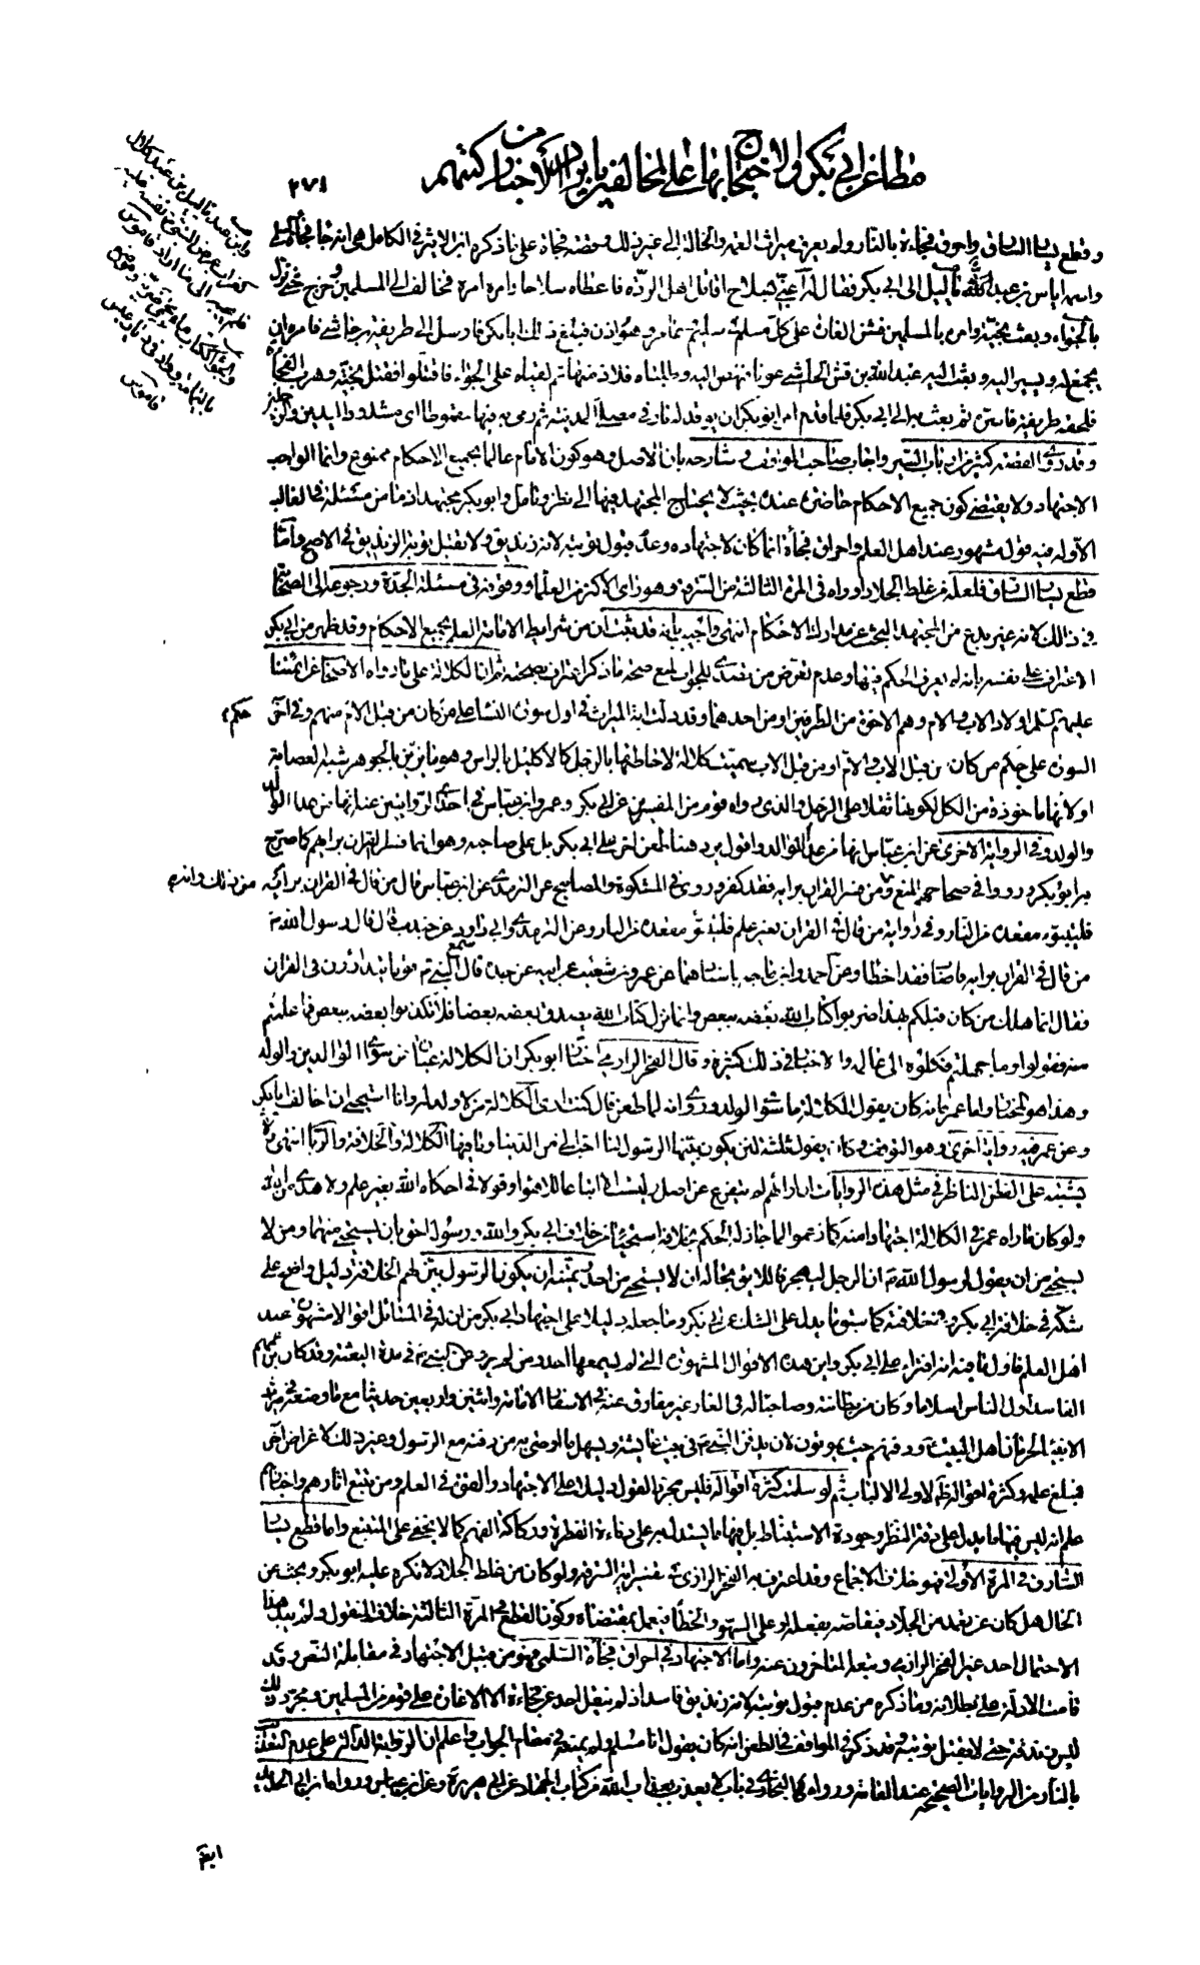 مطاعن ابي بكر والاحتجاج بها على المخالفين بايراد الاخبار من كتبهم
٢٧١
وقطع يسار السارق واحرق فجاءة بالنار ولم يعرف ميراث الجدة والخالة الى غير ذلك وقصة فجاءة على ما ذكره ابن الاثير في الكامل هي انه جاء فجاءة السلمي
واسمه اياس بن عبد الله بن عبد ياليل الى ابي بكر فقال له اعني بسلاح اقاتل اهل الردة فاعطاه سلاحا وامره امرة فخالف الى المسلمين وخرج حتى نزل
بالجواء وبعث نجبة وامره بالمسلمين فشن الغارة على كل مسلم في سليم وعامر وهوازن فبلغ ذلك ابا بكر فارسل الى طريفة بن حاشي فامره ان
يجمع له ويسير اليه وبعث اليه عبد الله بن قيس الحاشي عونا فنهضا اليه وطلباه فلاذ منهما ثم لقياه على الجواء فاقتتلوا فقتل نجبة وهرب الفجاءة
فلحقه طريفة فاسره ثم بعث به الى ابي بكر فلما قدم امر ابو بكر ان يوقد له نار في مصلى المدينة ثم رمي به فيها مقموطا اي مشدود اليدين والرجلين
وقد روى القصة كثير من ارباب السير واجاب صاحب المواقف وشارحه بان الاصل وهو كون الامام عالما بجميع الاحكام ممنوع وانما الواجب
الاجتهاد ولا يقتضي كون جميع الاحكام حاضرة عنده بحيث لا يحتاج المجتهد فيها الى نظر وتامل وابو بكر مجتهد اذ ما من مسئلة في الغالب
الا وله فيه قول مشهور عند اهل العلم واحراق فجاءة انما كان لاجتهاده وعدم قبول توبته لانه زنديق ولا تقبل توبة الزنديق في الاصح واما
قطع يسار السارق فلعله من غلط الجلاد او راه في المرة الثالثة من السرقة وهو راى الاكثر من العلماء ووقوفه في مسئلة الجدة ورجوعه الى الصحابة
في ذلك لانه غير بدع من المجتهد البحث عن مدارك الاحكام انتهى واجيب بانه قد ثبت ان من شرايط الامامة العلم بجميع الاحكام وقد ظهر من ابي بكر
الاعتراف على نفسه بانه لم يعرف الحكم فيها وعدم تعرض من يتصدى للجواب لمنع صحة ما ذكر اعتراف بصحته ثم ان الكلالة على ما رواه الاصحاب عن ائمتنا
عليهم السلم اولاد الاب والام وهم الاخوة من الطرفين او من احدهما وقد دلت اية الميراث في اول سورة النساء على حكم من كان من قبل الام منهم وفي اخر
السورة على حكم من كان من قبل الاب والام او من قبل الاب سميت كلالة لاحاطتها بالرجل كالاكليل بالراس وهو ما يزين بالجوهر شبه العصابة
او لانها ماخوذة من الكل لكونها ثقلا على الرجل والذي رواه قوم من المفسرين عن ابي بكر وعمر وابن عباس في احدى الروايتين عنه انها من عدا الوالد
والولد وفي الرواية الاخرى عن ابن عباس انها من عدا الوالد واقول يرد هنا طعن اخر على ابي بكر بل على صاحبه وهو انهما فسرا القران برايهم كما صرح
به ابو بكر ورووا في صحاحهم المنع من ذلك وانه من فسر القران برايه فقد كفر وروى في المشكوة والمصابيح عن الترمذي عن ابن عباس قال من قال في القران برايه
فليتبوء مقعده من النار وفي رواية من قال في القران بغير علم فليتبوء مقعده من النار وعن الترمذي وابي داود عن جندب قال قال رسول الله ص
من قال في القران برايه فاصاب فقد اخطا وعن احمد وابن ماجه باسنادهما عن عمرو بن شعيب عن ابيه عن جده قال سمع النبي ص قوما يتدارؤن في القران
فقال انما هلك من كان قبلكم بهذا ضربوا كتاب الله بعضه ببعض وانما نزل كتاب الله يصدق بعضه بعضا فلا تكذبوا بعضه ببعض فما علمتم
منه فقولوا وما جهلتم فكلوه الى عالمه والاخبار في ذلك كثيرة وقال الفخر الرازي اختار ابو بكر ان الكلالة عبارة عن سوى الوالدين والولد
وهذا هو المختار واما عمر فانه كان يقول الكلالة ما سوى الولد وروى انه لما طعن قال كنت ارى الكلالة من لا ولد له وانا استحيي ان اخالف ابا بكر
وعن عمر فيه رواية اخرى وهو التوقف وكان يقول ثلثة لئن يكون بينها الرسول لنا احب الي من الدنيا وما فيها الكلالة والخلافة والربا انتهى ولا
يشتبه على الفطن الناظر في مثل هذه الروايات ان ارائهم لم يتفرع عن اصل وليست الا اتباعا للاهواء وقولا في احكام الله بغير علم ولا هدى من الله
ولو كان ما راه عمر في الكلالة اجتهادا منه كما زعموا لما جاز له الحكم بخلافه استحياء من خلاف ابي بكر والله ورسوله احق بان يستحيي منهما ومن لا
يستحيي من ان يقول لرسول الله ص ان الرجل ليهجر فاللايق بحاله ان لا يستحيي من احد وتمنيه ان يكون الرسول بين لهم الخلافة دليل واضح على
شكه في خلافة ابي بكر وفي خلافته كما سبق ما يدل على الشك عن ابي بكر وما جعله دليلا على اجتهاد ابي بكر من ان له في المسائل اقوالا مشهورة عند
اهل العلم فاول ما فيه انه افتراء على ابي بكر واين هذه الاقوال المشهورة التي لم يسمعها احد ومن لم يرو عن النبي ص في مدة البعثة وقد كان بزعمهم
الفاسد اول الناس اسلاما وكان من بطانته وصاحبا له في الغار غير مفارق عنه في الاسفار الا مائة واثنين واربعين حديثا مع ما وضعه في ميراث
الانبياء لحرمان اهل البيت ع ودفنهم حيث يموتون لان يدفن النبي ص في بيت عايشة ويسهل ما اوصى به من دفنه مع الرسول وغير ذلك لاغراض اخر
فبلغ علمه وكثرة اقواله ظهر لاولي الالباب ثم لو سلمت كثرة اقواله فليس مجرد القول دليلا على الاجتهاد والقوة في العلم ومن تتبع اثارهم واخبارهم
علم انه ليس فيها ما يدل على دقة النظر وجودة الاستنباط بل فيها ما يستدل به على دناءة الفطرة وركاكة الفهم كما لا يخفى على المتتبع واما قطع يسار
السارق في المرة الاولى فهو خلاف الاجماع وقد اعترف به الفخر الرازي في تفسير اية السرقة ولو كان من غلط الجلاد لانكره عليه ابو بكر وبحث عن
الحال هل كان عن تعمد من الجلاد فيقاصه بفعله او على السهو والخطا فيعمل بمقتضاه وكون القطع في المرة الثالثة خلاف المنقول ولم يبد هذا
الاحتمال احد غير الفخر الرازي وتبعه المتاخرون عنه واما الاجتهاد في احراق فجاءة السلمي فهو من قبيل الاجتهاد في مقابلة النص وقد
قامت الادلة على بطلانه وما ذكره من عدم قبول توبته لانه زنديق فاسد اذ لم ينقل احد عن فجاءة الا الاغارة على قوم من المسلمين ومجرد ذلك
ليس زندقة حتى لا يقبل توبته وقد ذكر في المواقف في الطعن انه كان يقول انا مسلم ولم يمنعه في مقام الجواب واعلم ان الرواية الدالة على عدم التعذيب
بالنار من الروايات الصحيحة عند العامة ورواه البخاري في باب لا يعذب بعذاب الله من كتاب الجهاد عن ابي هريرة وعن ابن عباس ورواه ابن ابي الحديد
ايضا